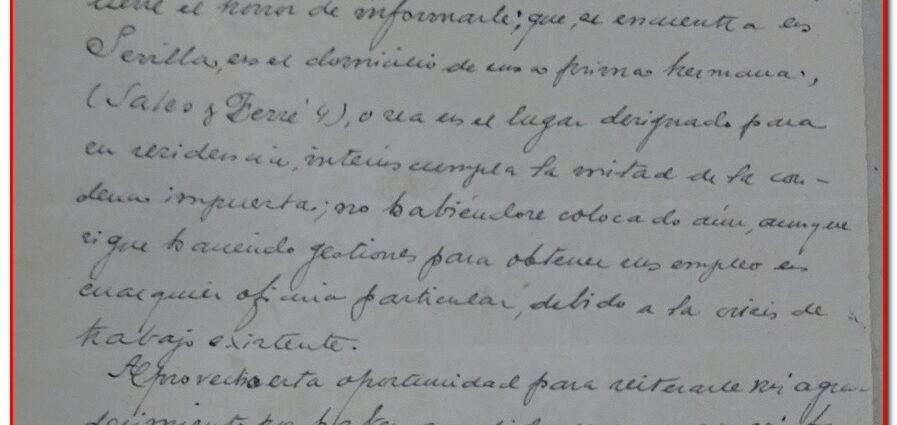 tiene el honor de informarle; que, se encuentra en
Sevilla, en el domicilio de una prima hermana,
(Sales y Ferré 4), o sea en el lugar designado para
su residencia, interin cumpla la mitad de la con-
dena impuesta; no habiéndose colocado aún, aunque
sigue haciendo gestiones para obtener un empleo en
cualquier oficina particular, debido a la crisis de
trabajo existente.
Aprovecho esta oportunidad para reiterarle mi agra-
decimiento por haber